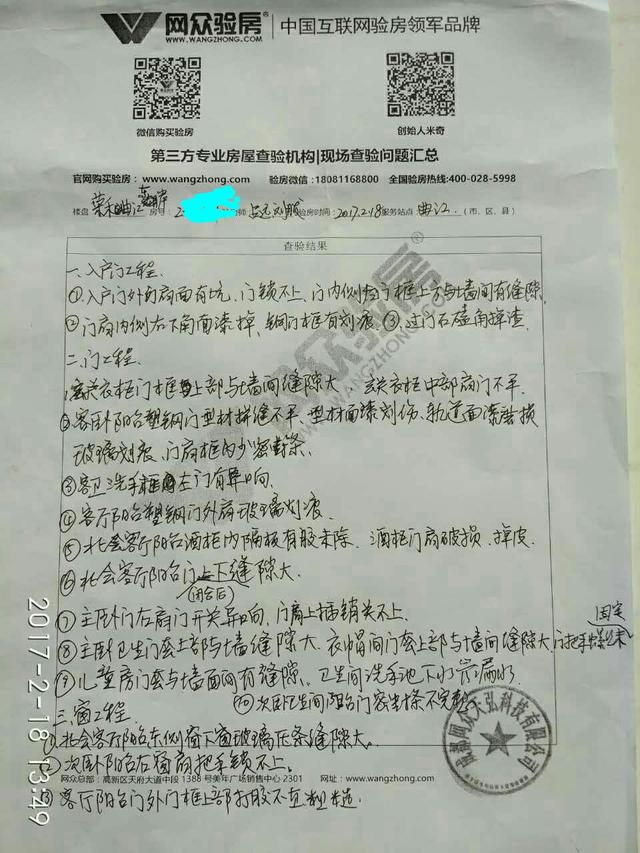 网众验房® 中国互联网验房领军品牌
WWW.WANGZHONG.COM
微信购买验房 创始人米奇
第三方专业房屋查验机构|现场查验问题汇总
官网购买验房：www.wangzhong.com 验房微信：18081168800 全国验房热线:400-028-5998
楼盘 荣和曲江 房号: 2- 验房时间: 2017.2.18 服务站点: 曲江.（市、区、县）
查验结果
一.入户门工程.
①入户门外向扇面有坑、门锁不上、门内侧 门框上方与墙间有缝隙
②门扇内侧右下角面漆掉、钢门框有划痕 ③、过门石磕角掉渣
二.门工程.
玄关衣柜门框 上部与墙间缝隙大 玄关衣柜中部扇门不平.
②客卧阳台塑钢门型材拼缝不平、型材面漆划伤、轨道面漆磨损
玻璃划痕、门扇框内少密封条
③客卫洗手 左门有异响.
④客厅阳台塑钢门外扇玻璃划痕
⑤北会客厅阳台酒柜内隔板有胶未除、酒柜门扇破损、掉皮
⑥北会客厅阳台门上下缝隙大.
(闭合后)
⑦主卧门右扇门开关异响、门扇上插销关不上.
固定
⑧主卧卫生门套上部与墙缝隙大、衣帽间门套上部与墙间缝隙大、门把手
⑨儿童房门套与墙面间有缝隙.、卫生间洗手池下水 漏水.
⑩次卧卫生间阳台门密封条不完整
三.窗工程.
①北会客厅阳台东侧窗下窗玻璃压条缝隙大.
②次卧阳台右窗扇把手锁不上.
网众总部：高新区天府大道中段1388号美年广场销售中心2301 网址：www.wangzhong.com
③客厅阳台门外门框上部打胶不
网众验房
WWW.WANGZHONG.COM
成都网众天弘科技有限公司
2017-2-18 13:49